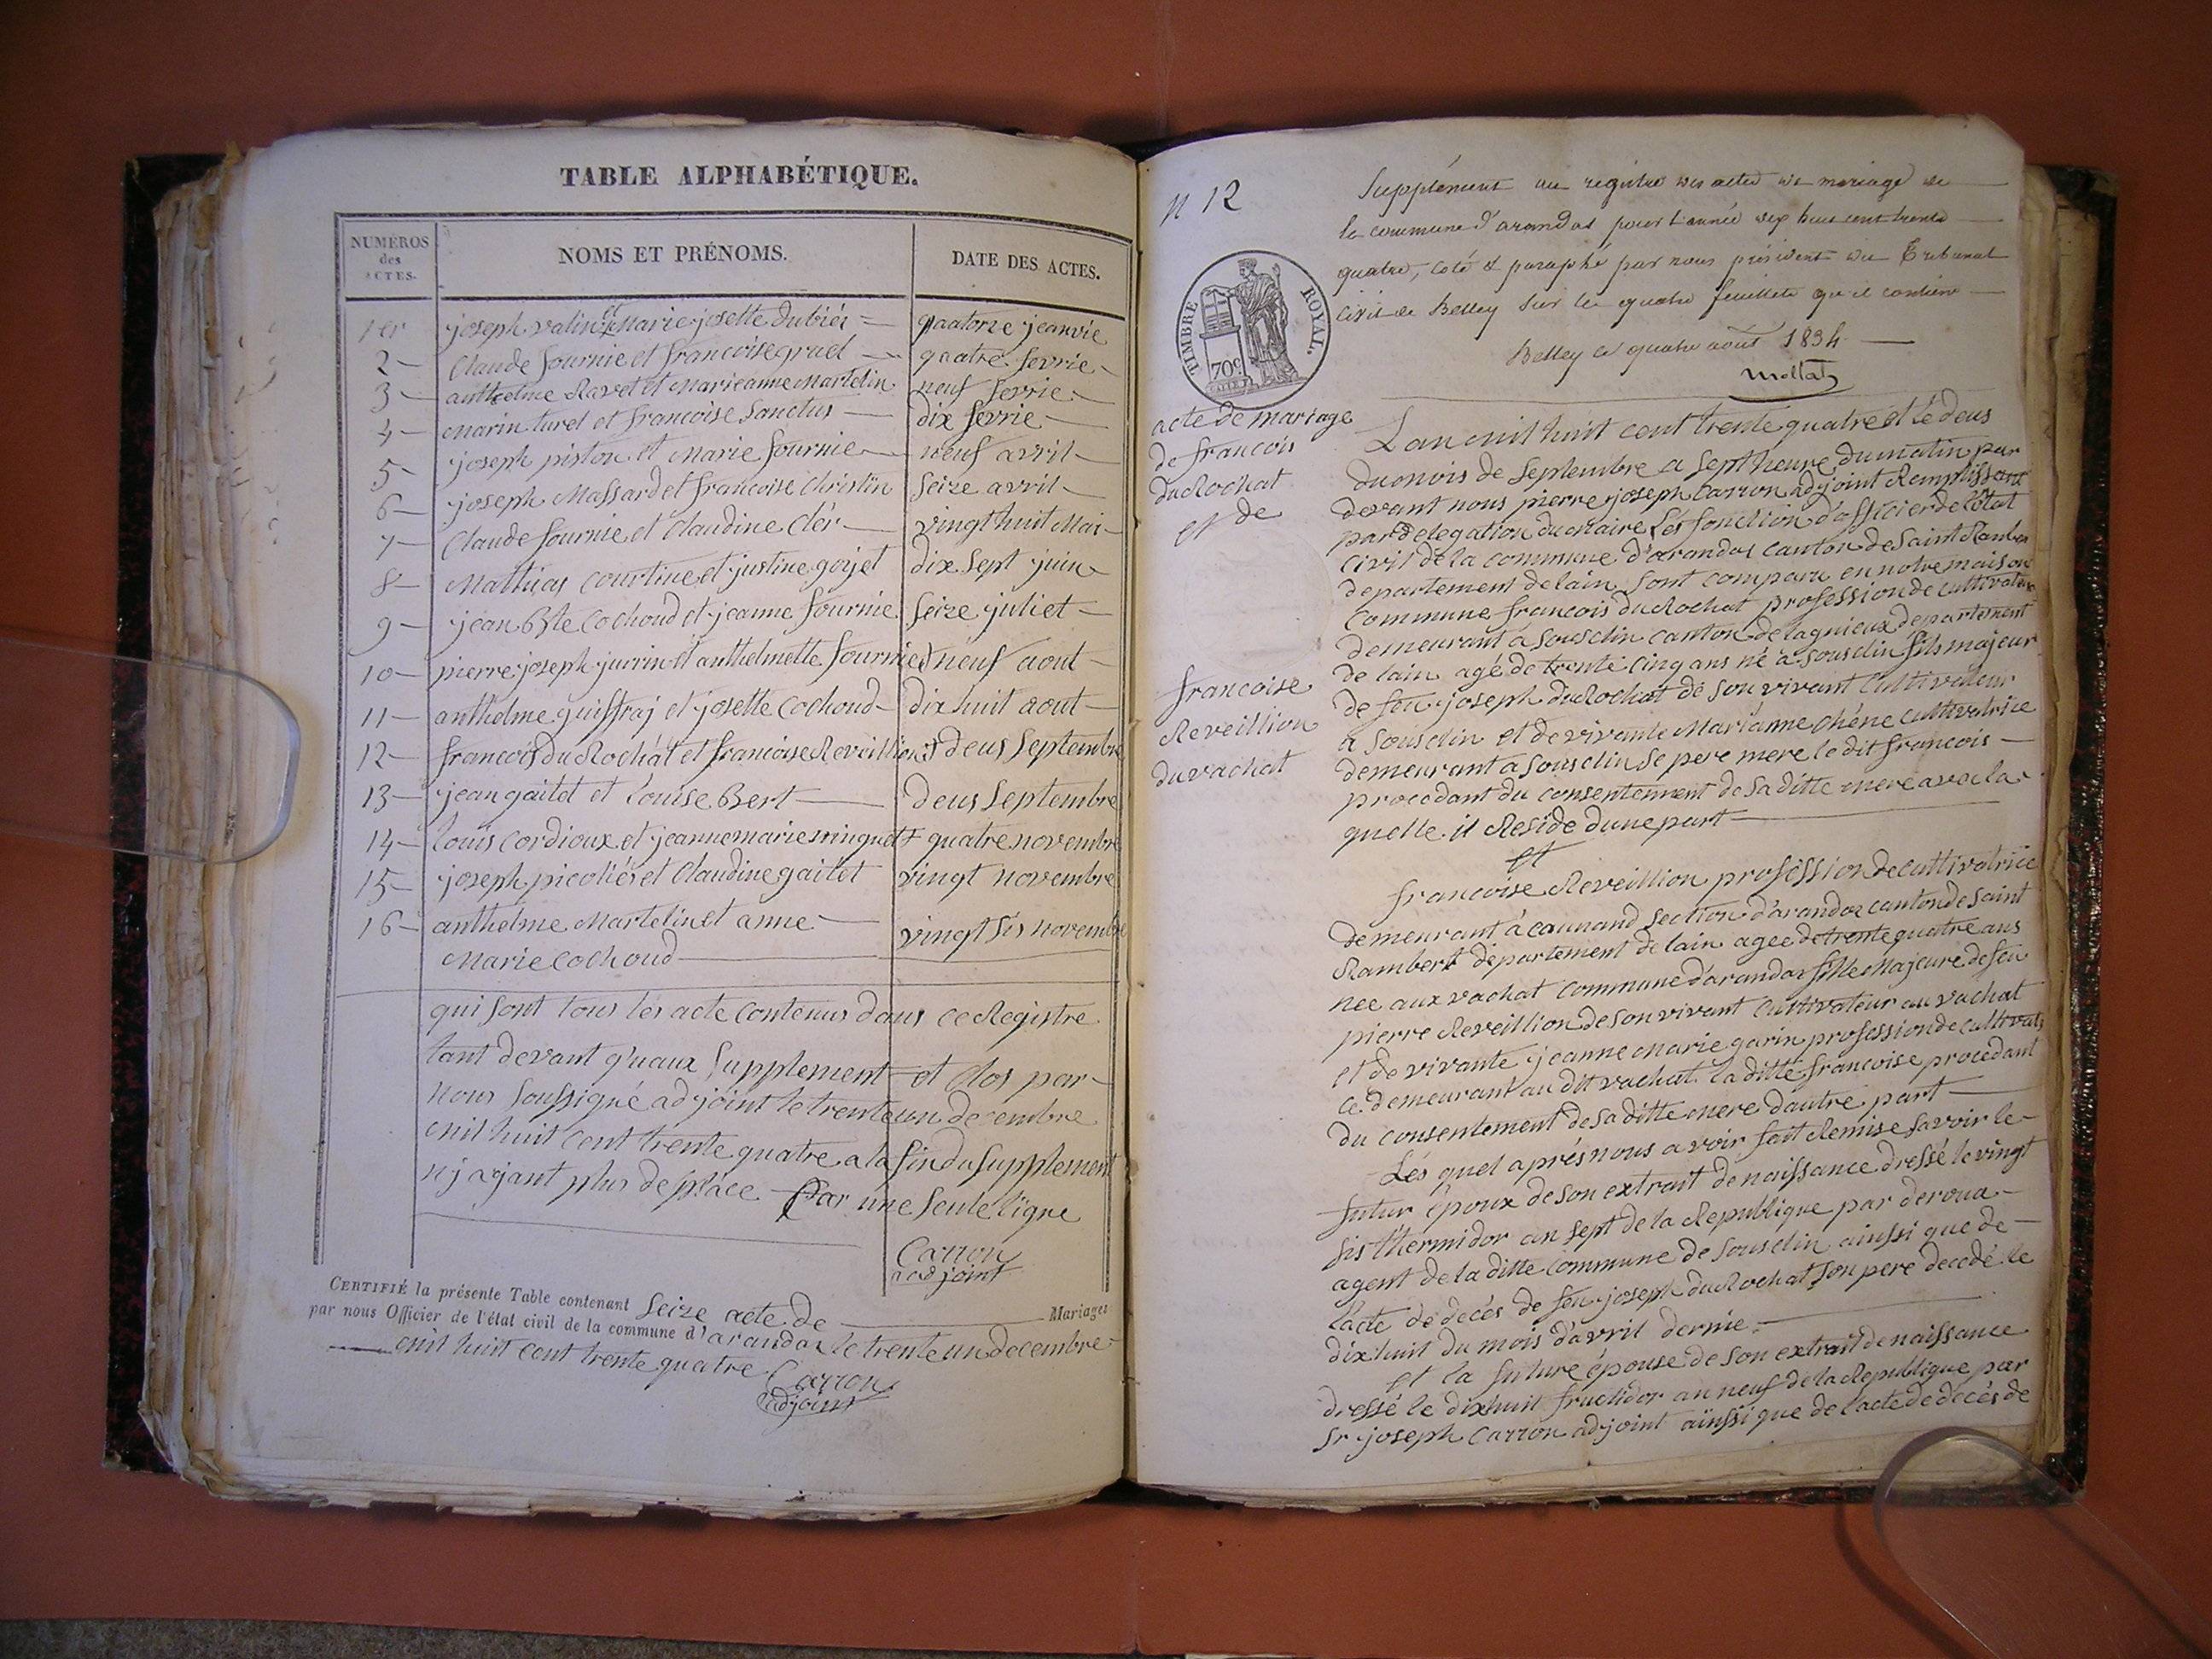 TABLE ALPHABÉTIQUE.
NUMÉROS des ACTES.
NOMS ET PRÉNOMS.
DATE DES ACTES.
1er joseph valin et Marie josette dubiér quatorze jeanvie
2 Claude fournie et francoise gruel quatre fevrie
3 anthelme Ravet et Marieanne Martelin neuf fevrie
4 Marin turel et francoise Sanctus dix fevrie
5 joseph piston et Marie fournie neuf avril
6 joseph Massard et francoise Christin Seize avril
7 Claude fournie et Claudine Clér vingt huit Mai
8 Mathias Courtine et justine gojet dix Sept juin
9 jean Bte Cochoud et jeanne fournie Seize juliet
10 pierre joseph juvrin et anthelmette fournie neuf aout
11 anthelme guiffraj et josette Cochoud dix huit aout
12 francois du Rochat et francoise Reveillion deus Septembre
13 jean gaitet et Louise Bert deus Septembre
14 Louis Cordioux et jeanne marie minguet quatre novembre
15 joseph picoliér et Claudine gaitet vingt novembre
16 anthelme Martelin et anne vingt Sis novembre
Marie Cochoud
qui Sont tous lés acte Contenus dans ce Registre
tant devant q'uaux Supplement et Clos par
nous Soussigné adjoint le trente un decembre
mil huit cent trente quatre a la fin du Supplement
nj ajant plus de place Par une Seule ligne
Carron
adjoint
CERTIFIÉ la présente Table contenant Seize acte de Mariages
par nous Officier de l'état civil de la commune d'arandas le trente un decembre
mil huit cent trente quatre Carron
adjoint
N 12
Supplément au registre des actes de mariage de
la commune d'arandas pour l'année dix huit cent trente
quatre, coté & paraphé par nous président du Tribunal
civil de Belley sur les quatre feuillets qu'il contient
Belley le quatre août 1834
Mollat
TIMBRE ROYAL.
70c
acte de mariage
de francois
du Rochat
et de
francoise
Reveillion
du vachat
Lan mil huit cent trente quatre et le deus
du mois de Septembre a Sept heure du matin par
devant nous pierre joseph Carron adjoint Remplissant
par delegation du Maire Les fonction d'officier de l'état
Civil de la commune d'arandas canton de Saint Rambert
departement de lain Sont comparu en notre maison
Commune francois du Rochat profession de cultivateur
demeurant a Sousclin canton de lagnieux departement
de lain agé de trente cinq ans né a Sousclin fils majeur
de feu joseph du Rochat de Son vivant Cultivateur
a Sousclin et de vivante Marianne Chéne Cultivatrice
demeurant a Sousclin Se pere mere le dit francois
procedant du consentement de Sa ditte mere avec la
quelle il Reside dune part
et
francoise Reveillion profession de Cultivatrice
demeurant á caunand Section d'arandas canton de Saint
Rambert departement de lain agee de trente quatre ans
nee aux vachat Commune d'arandas fille Majeure de feu
pierre Reveillion de Son vivant Cultivateur au vachat
et de vivante jeanne Marie garin profession de Cultivatri
ce demeurant au dit vachat la ditte francoise procedant
du consentement de Sa ditte mere dautre part
Lés quel aprés nous avoir fait Remise Savoir le
futur époux de Son extrait de naissance dressé le vingt
Sis thermidor an Sept de la Republique par deroua
agent de la ditte Commune de Sousclin ainssi que de
l'acte de decés de feu joseph du Rochat Son pere decedé le
dix huit du mois d'avril dernie
et la future épouse de Son extrait de naissance
dressé le dix huit fructidor an neuf de la Republique par
Sr joseph Carron adjoint ainssi que de l'acte de decés de